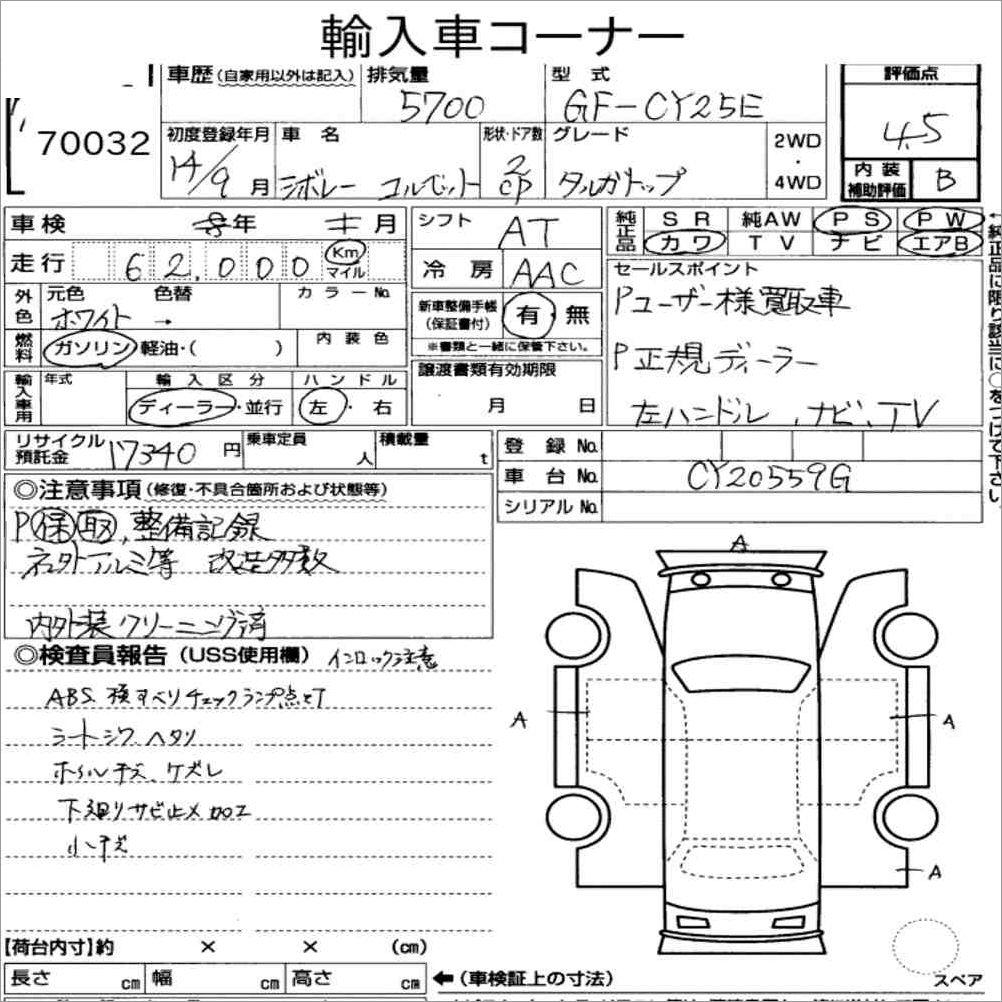 輸入車コーナー
車歴(自家用以外は記入) 排気量 型 式 評価点
5700 GF-CY25E 4.5
70032
初度登録年月 車 名 形状・ドア数 グレード 2WD
・
4WD
14/9 月 シボレー コルベット 2 CP タルガトップ
内装補助評価 B
車検 年 月 シフト AT
純正品 SR 純AW PS PW
カワ TV ナビ エアB
走行 62,000 Km
マイル
冷 房 AAC
セールスポイント
外色 元色 色替 カラーNo.
ホワイト →
新車整備手帳 (保証書付) 有・無
※書類と一緒に保管下さい。
Pユーザー様買取車
燃料 ガソリン・軽油・( ) 内装色
P正規ディーラー
輸入車用 年式 輸入区分 ハンドル
ディーラー・並行 左・右
譲渡書類有効期限
月 日
左ハンドル、ナビ、TV
←純正品に限り該当に○をつけて下さい
リサイクル預託金 17340 円 乗車定員 人 積載量 t
登 録 No.
車 台 No. CY20559G
シリアル No.
◎注意事項(修復・不具合箇所および状態等)
P保取、整備記録
社外アルミ等 改造多数
内外装クリーニング済
◎検査員報告(USS使用欄) インロック注意
ABS. 横すべりチェックランプ点灯
シートシワ、ヘタリ
ホイルキズ、ケズレ
下廻りサビ止メ加工
小キズ
A
A
A
A
【荷台内寸】約 × × (cm)
長さ cm 幅 cm 高さ cm ←(車検証上の寸法)
スペア